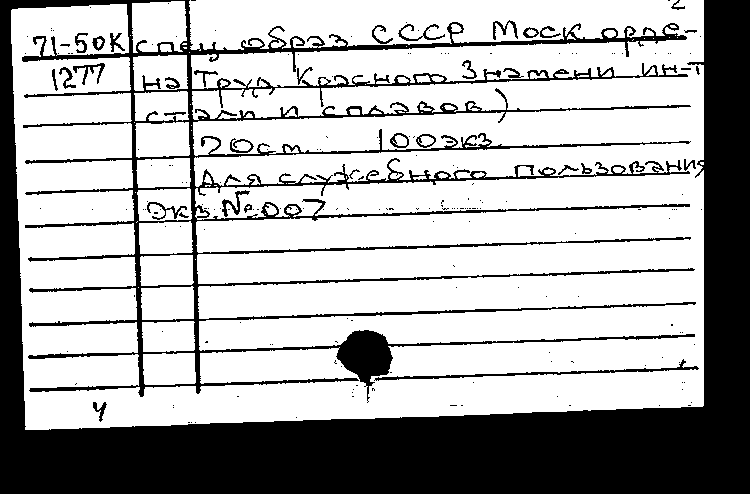 2
71-50К спец. образ СССР Моск орде-
1277 на Труд. Красного Знамени ин-т
стали и сплавов).
20 ст. 100 экз.
Для служебного пользования
Экз. № 007
4